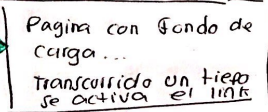 Pagina con fondo de
carga...
Transcurrido un tiepo
se activa el link